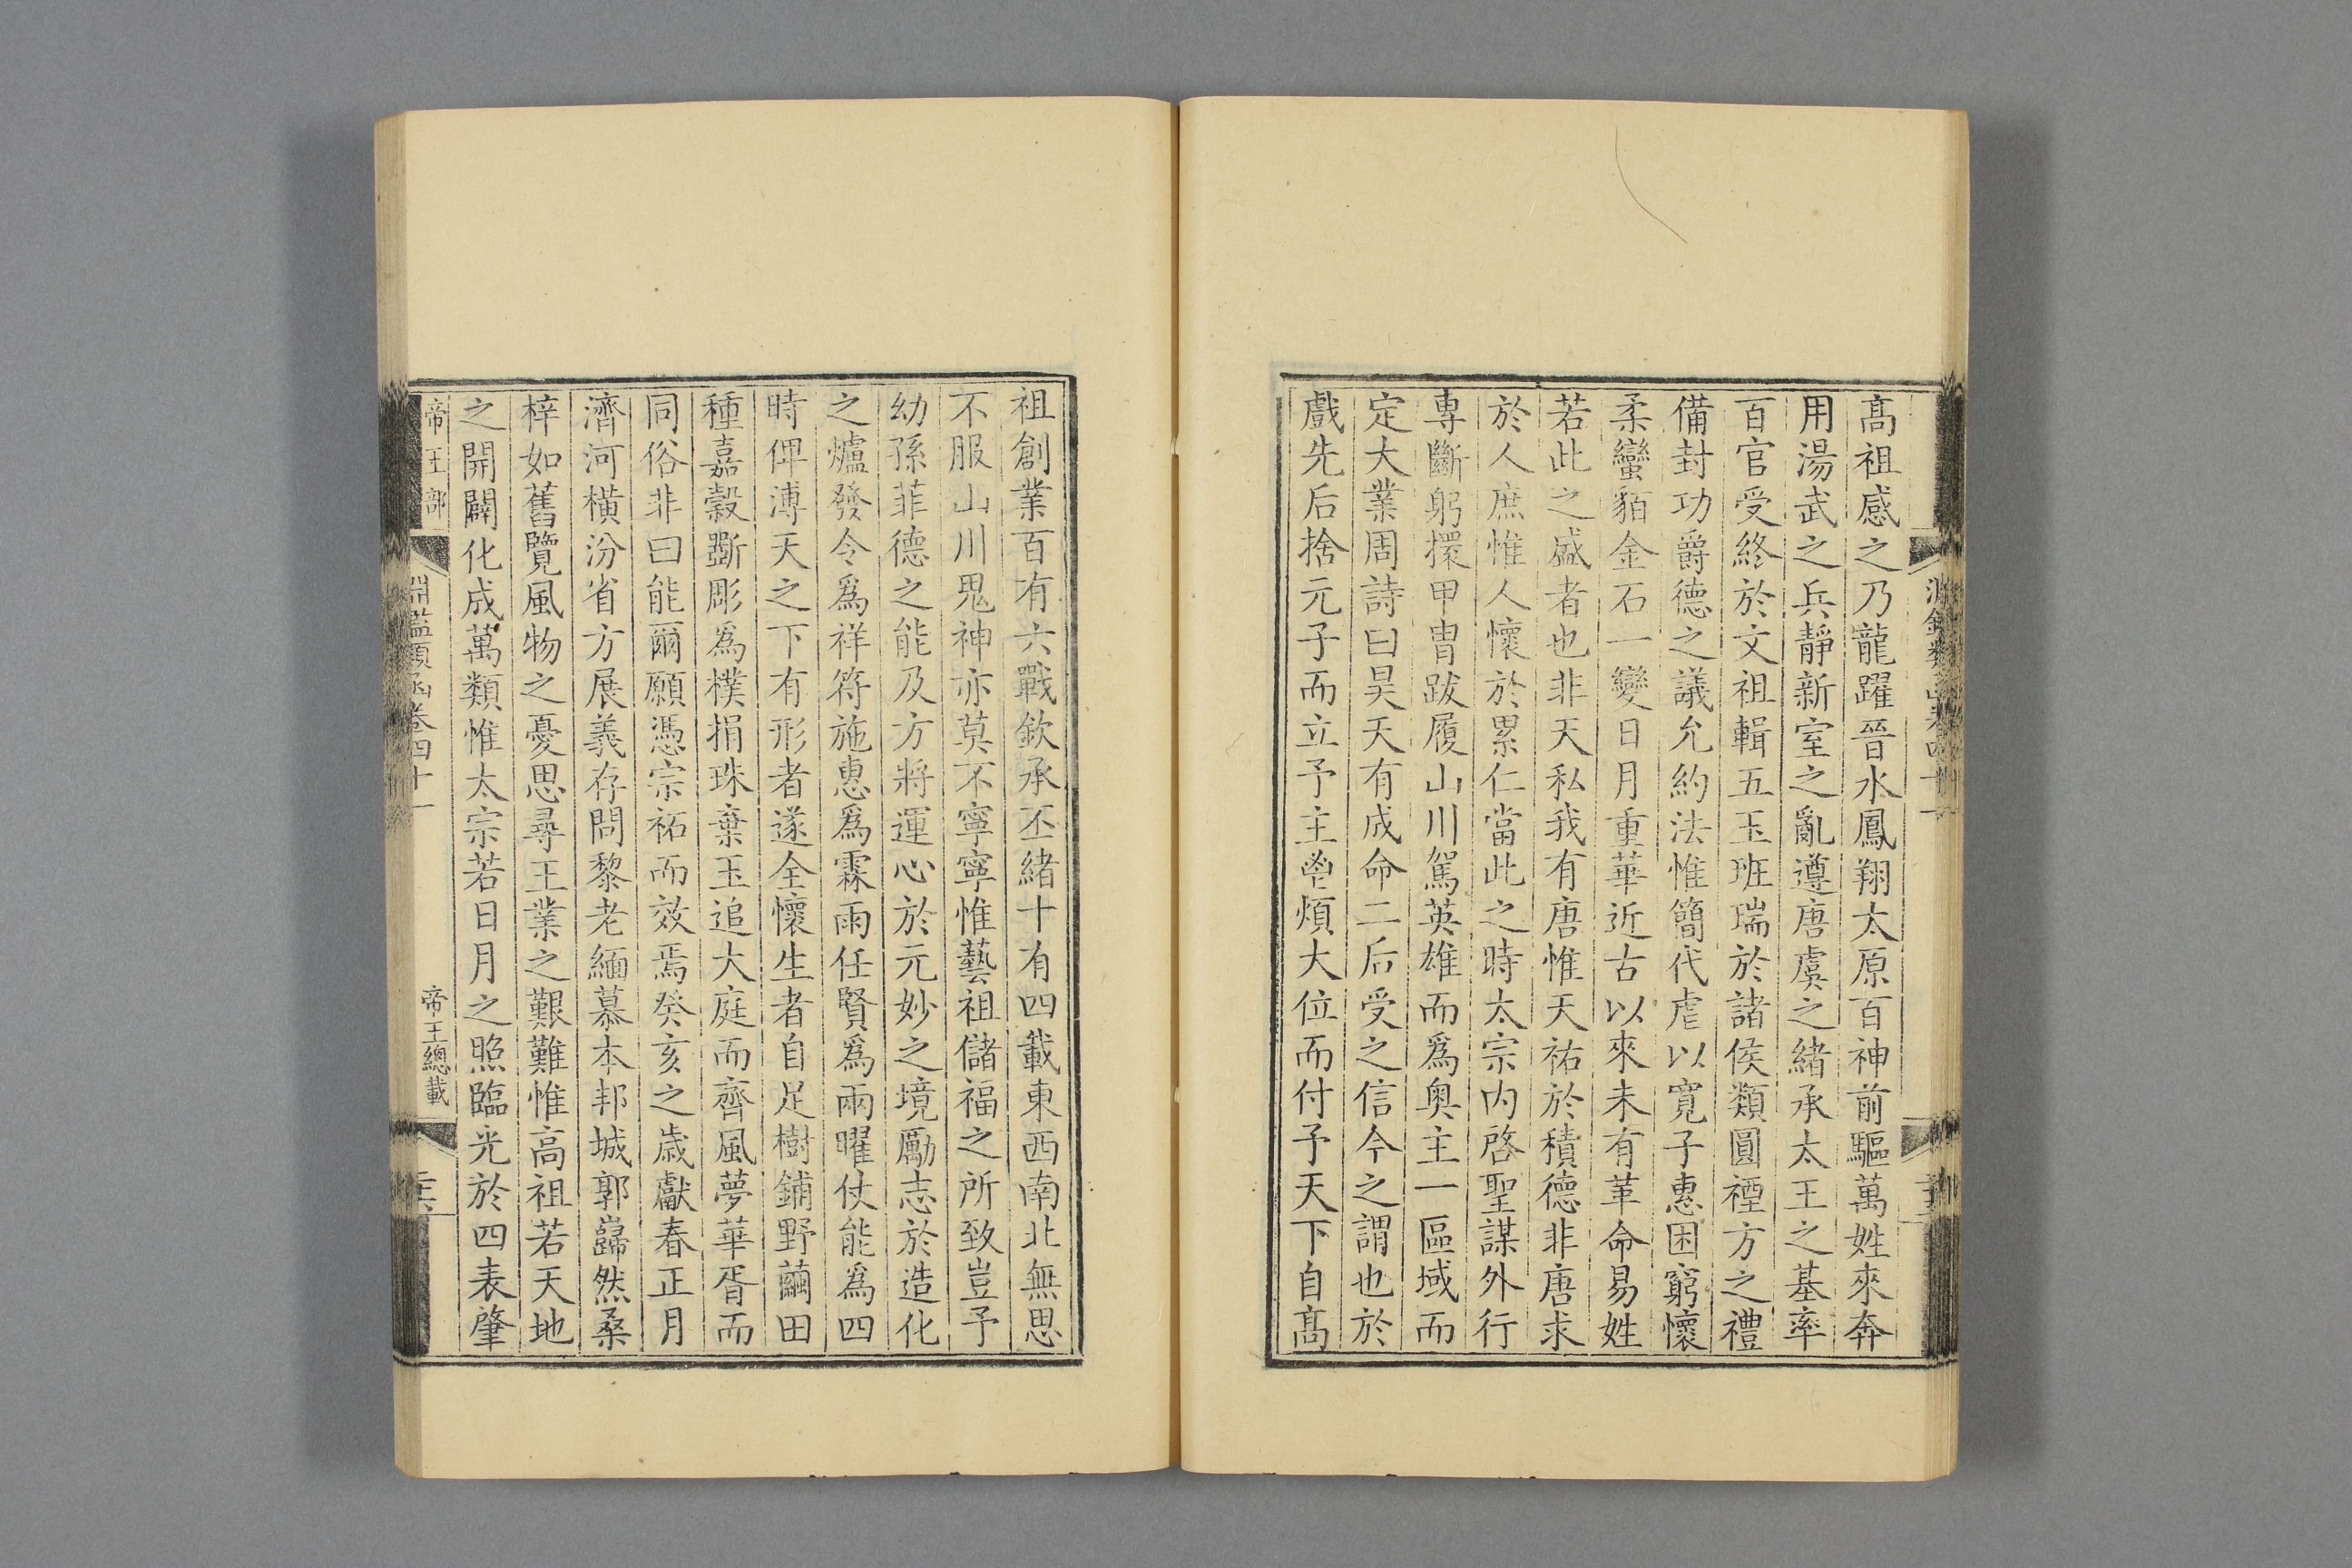 高祖感之乃龍躍晉水鳳翔太原百神前驅萬姓來奔
用湯武之兵靜新室之亂遵唐虞之緒承太王之基率
百官受終於文祖輯五玉班瑞於諸侯類圓禋方之禮
備封功爵德之議允約法惟簡代虐以寬子惠困窮懷
柔蠻貊金石一變日月重華近古以來未有革命易姓
若此之盛者也非天私我有唐惟天祐於積德非唐求
於人庶惟人懷於累仁當此之時太宗内啓聖謀外行
專斷躬擐甲冑跋履山川駕英雄而爲奧主一區域而
定大業周詩曰昊天有成命二后受之信今之謂也於
戲先后捨元子而立予主鬯煩大位而付予天下自高
祖創業百有六戰欽承丕緒十有四載東西南北無思
不服山川鬼神亦莫不寧寧惟藝祖儲福之所致豈予
幼孫菲德之能及方將運心於元妙之境勵志於造化
之爐發令爲祥符施惠爲霖雨任賢爲兩曜仗能爲四
時俾溥天之下有形者遂全懷生者自足樹鋪野繭田
種嘉穀斲彫爲樸捐珠棄玉追大庭而齊風夢華胥而
同俗非曰能爾願憑宗祏而效焉癸亥之歲獻春正月
濟河橫汾省方展義存問黎老緬慕本邦城郭巋然桑
梓如舊覽風物之憂思尋王業之艱難惟高祖若天地
之開闢化成萬類惟太宗若日月之照臨光於四表肇
帝王部
淵鑑類函卷四十一
帝王總載